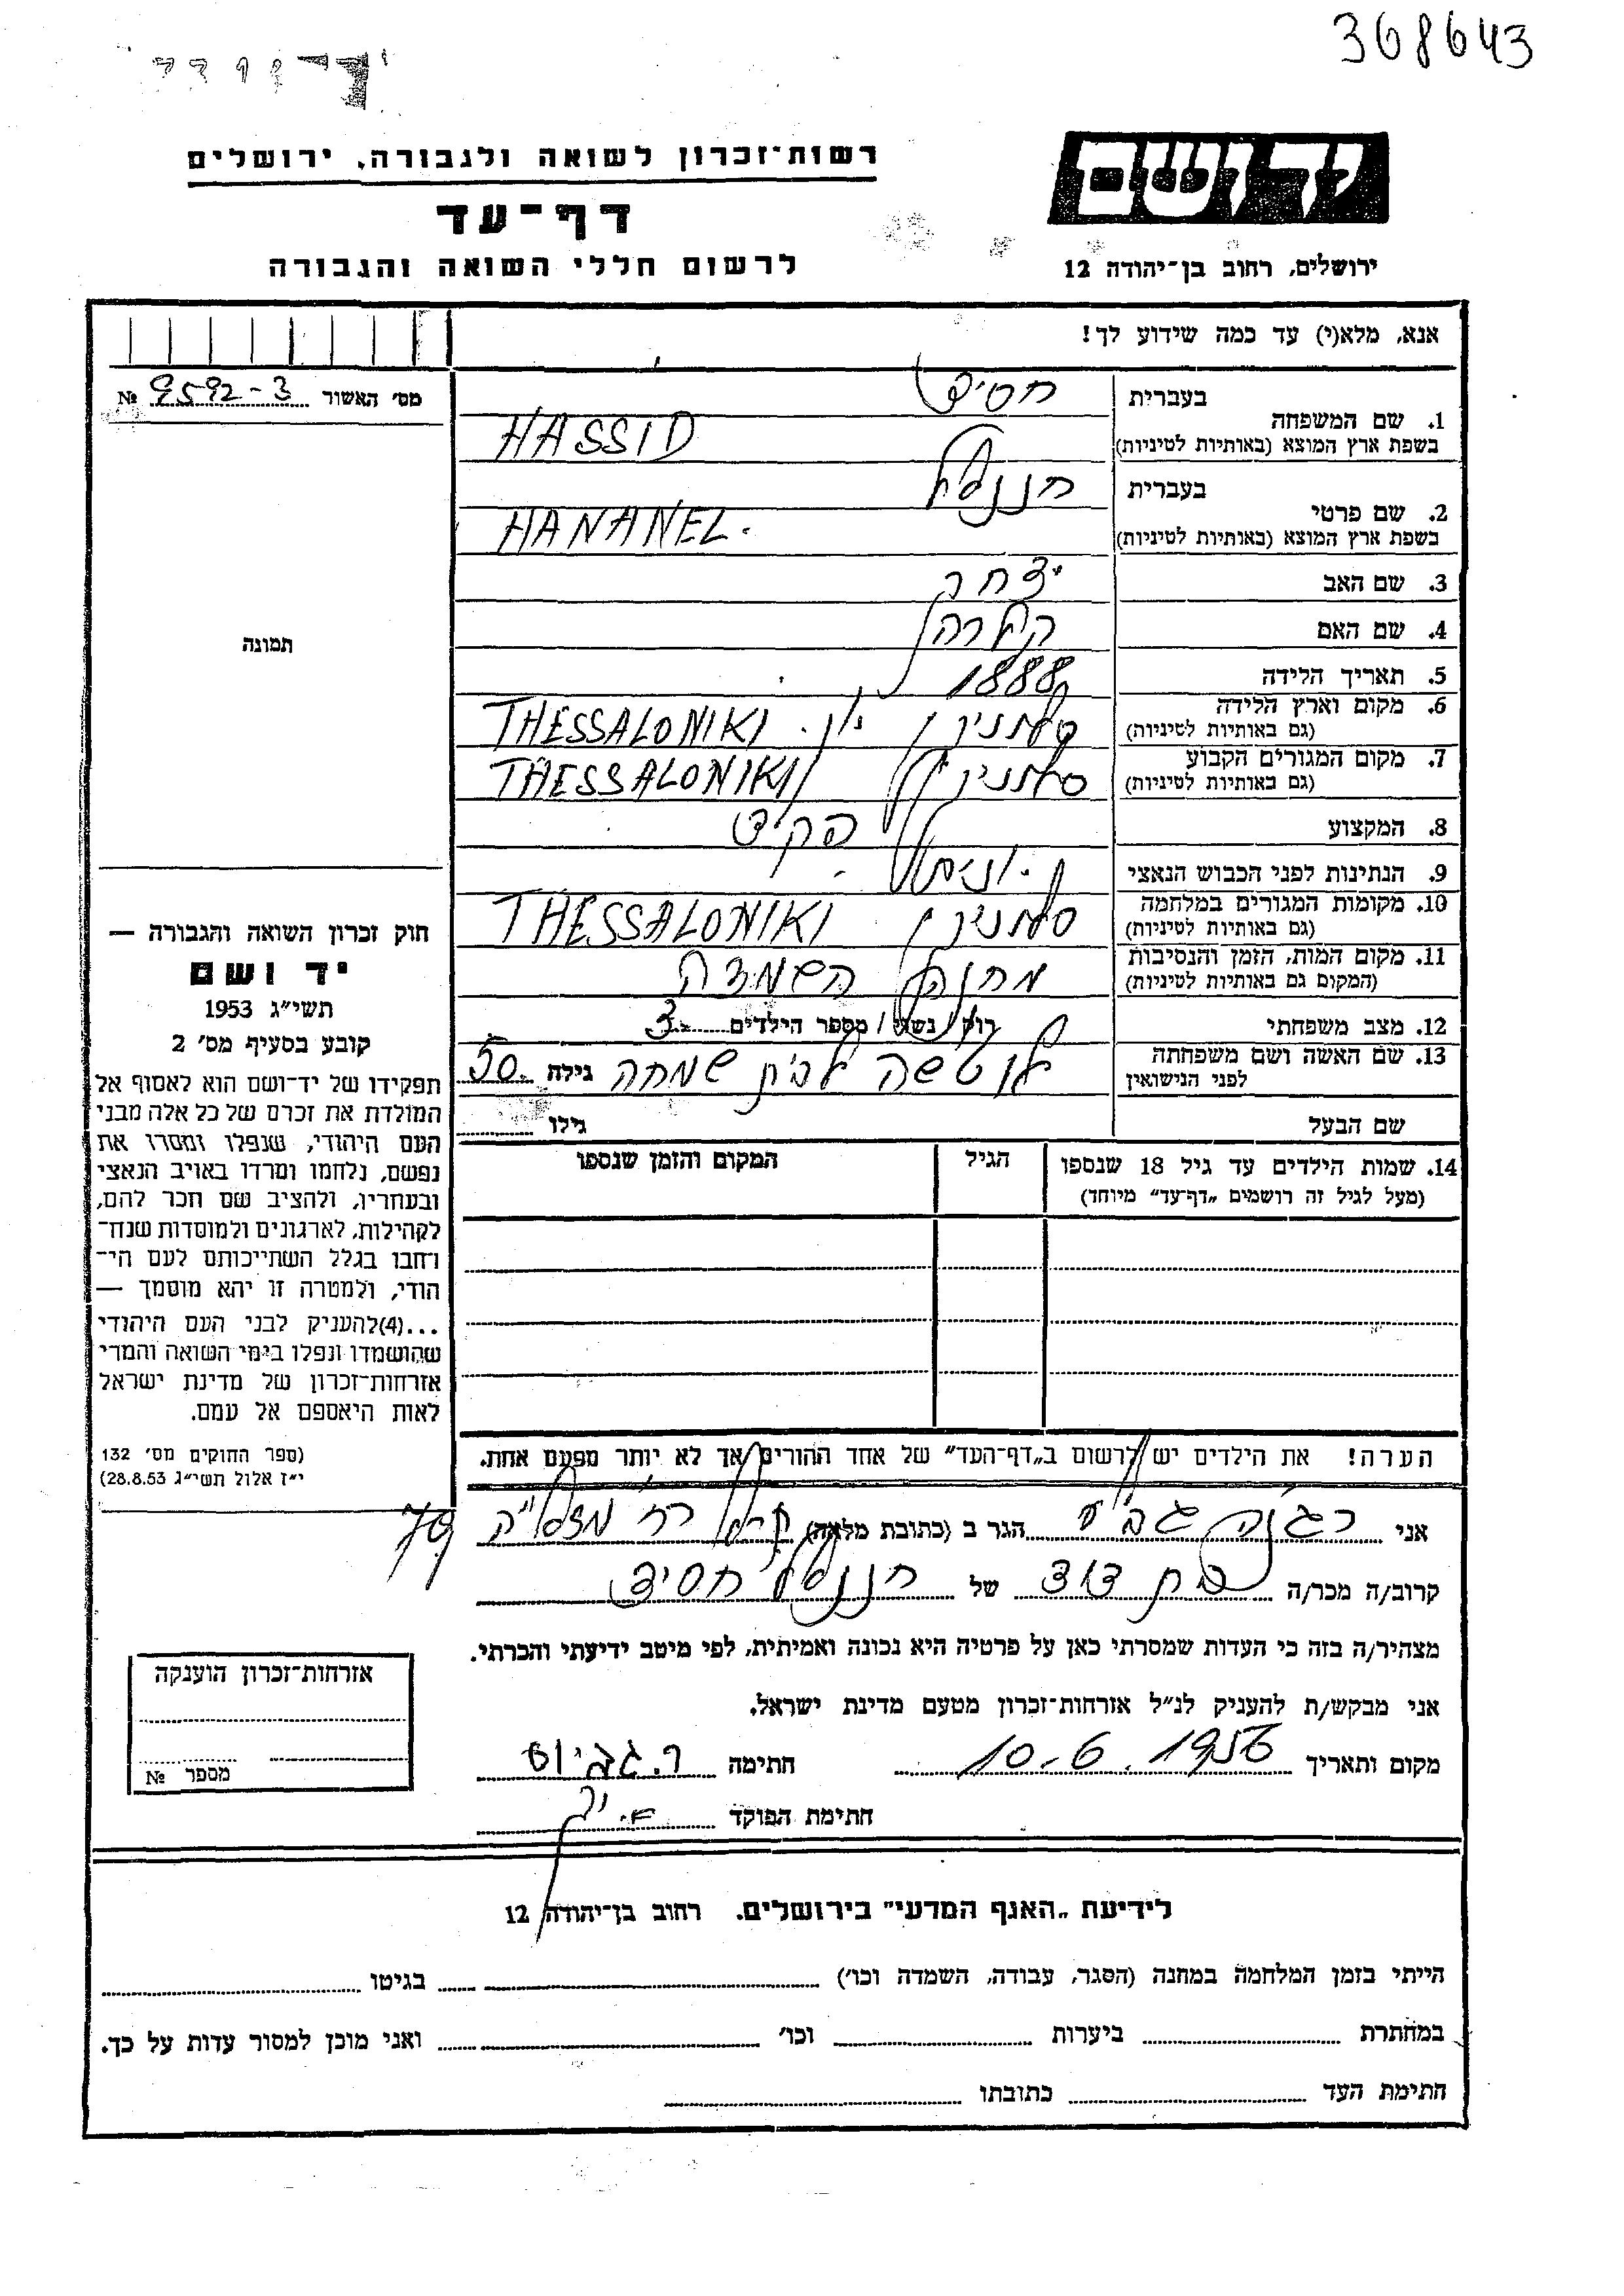 368643
יד ושם
רשות־זכרון לשואה ולגבורה, ירושלים
דף־עד
לרשום חללי השואה והגבורה
ירושלים, רחוב בן־יהודה 12
אנא, מלא(י) עד כמה שידוע לך!
מס׳ האשור 9592-3 №
1. שם המשפחה
בעברית חסיד
בשפת ארץ המוצא (באותיות לטיניות) HASSID
2. שם פרטי
בעברית חננאל
בשפת ארץ המוצא (באותיות לטיניות) HANANEL.
3. שם האב יצחק
4. שם האם קלרה
5. תאריך הלידה 1888
6. מקום וארץ הלידה סלוניקי יון. THESSALONIKI
(גם באותיות לטיניות)
7. מקום המגורים הקבוע סלוניקי THESSALONIKI
(גם באותיות לטיניות)
8. המקצוע פקיד
9. הנתינות לפני הכבוש הנאצי
10. מקומות המגורים במלחמה סלוניקי THESSALONIKI
(גם באותיות לטיניות)
11. מקום המות, הזמן והנסיבות מחנה השמדה
(המקום גם באותיות לטיניות)
12. מצב משפחתי רוק/נשוי/מספר הילדים 3
13. שם האשה ושם משפחתה לבית שמחה גילה 50
לפני הנישואין
שם הבעל גילו
14. שמות הילדים עד גיל 18 שנספו הגיל המקום והזמן שנספו
(מעל לגיל זה רושמים „דף־עד״ מיוחד)
הערה! את הילדים יש לרשום ב„דף־העד״ של אחד ההורים אך לא יותר מפעם אחת.
תמונה
חוק זכרון השואה והגבורה —
יד ושם
תשי״ג 1953
קובע בסעיף מס׳ 2
תפקידו של יד־ושם הוא לאסוף אל
המולדת את זכרם של כל אלה מבני
העם היהודי, שנפלו ומסרו את
נפשם, נלחמו ומרדו באויב הנאצי
ובעוזריו, ולהציב שם וזכר להם,
לקהילות, לארגונים ולמוסדות שנח־
רחבו בגלל השתייכותם לעם הי־
הודי, ולמטרה זו יהא מוסמך —
...(4)להעניק לבני העם היהודי
שהושמדו ונפלו בימי השואה והמרי
אזרחות־זכרון של מדינת ישראל
לאות היאספם אל עמם.
(ספר החוקים מס׳ 132
י״ז אלול תשי״ג 28.8.53)
אני הגר ב (כתובת מלאה) רח׳
קרוב/ה מכר/ה בת דוד של חננאל חסיד
מצהיר/ה בזה כי העדות שמסרתי כאן על פרטיה היא נכונה ואמיתית, לפי מיטב ידיעתי והכרתי.
אני מבקש/ת להעניק לנ״ל אזרחות־זכרון מטעם מדינת ישראל.
מקום ותאריך 10.6.1956 חתימה
חתימת הפוקד
אזרחות־זכרון הוענקה
מספר №
לידיעת „האגף המדעי״ בירושלים. רחוב בן־יהודה 12
הייתי בזמן המלחמה במחנה (הסגר, עבודה, השמדה וכו׳) בגיטו
במחתרת ביערות וכו׳ ואני מוכן למסור עדות על כך.
חתימת העד כתובתו